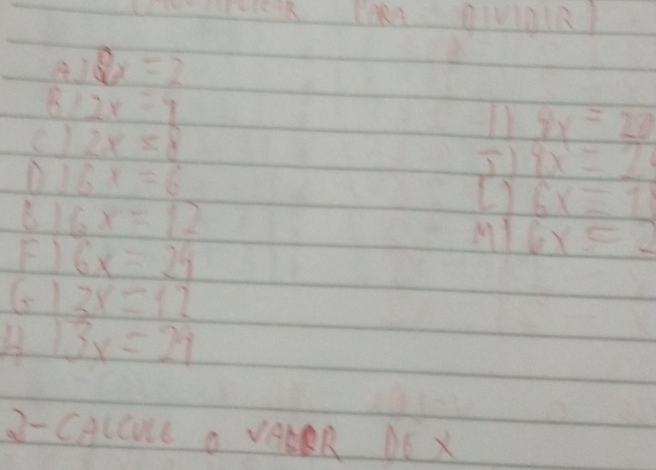 PARA DIVIDIR)
A) 2x = 2
B) 2x = 4
C) 2x = 8
D) 6x = 6
E) 6x = 12
F) 6x = 24
G) 3x = 12
H) 3x = 24
I) 4x = 20
J) 4x =
L) 6x =
M) 6x =
2-CALCULE O VALOR DE X